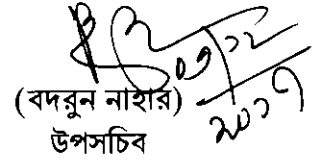 ০৩/১২
২০১৭
(বদরুন নাহার)
উপসচিব